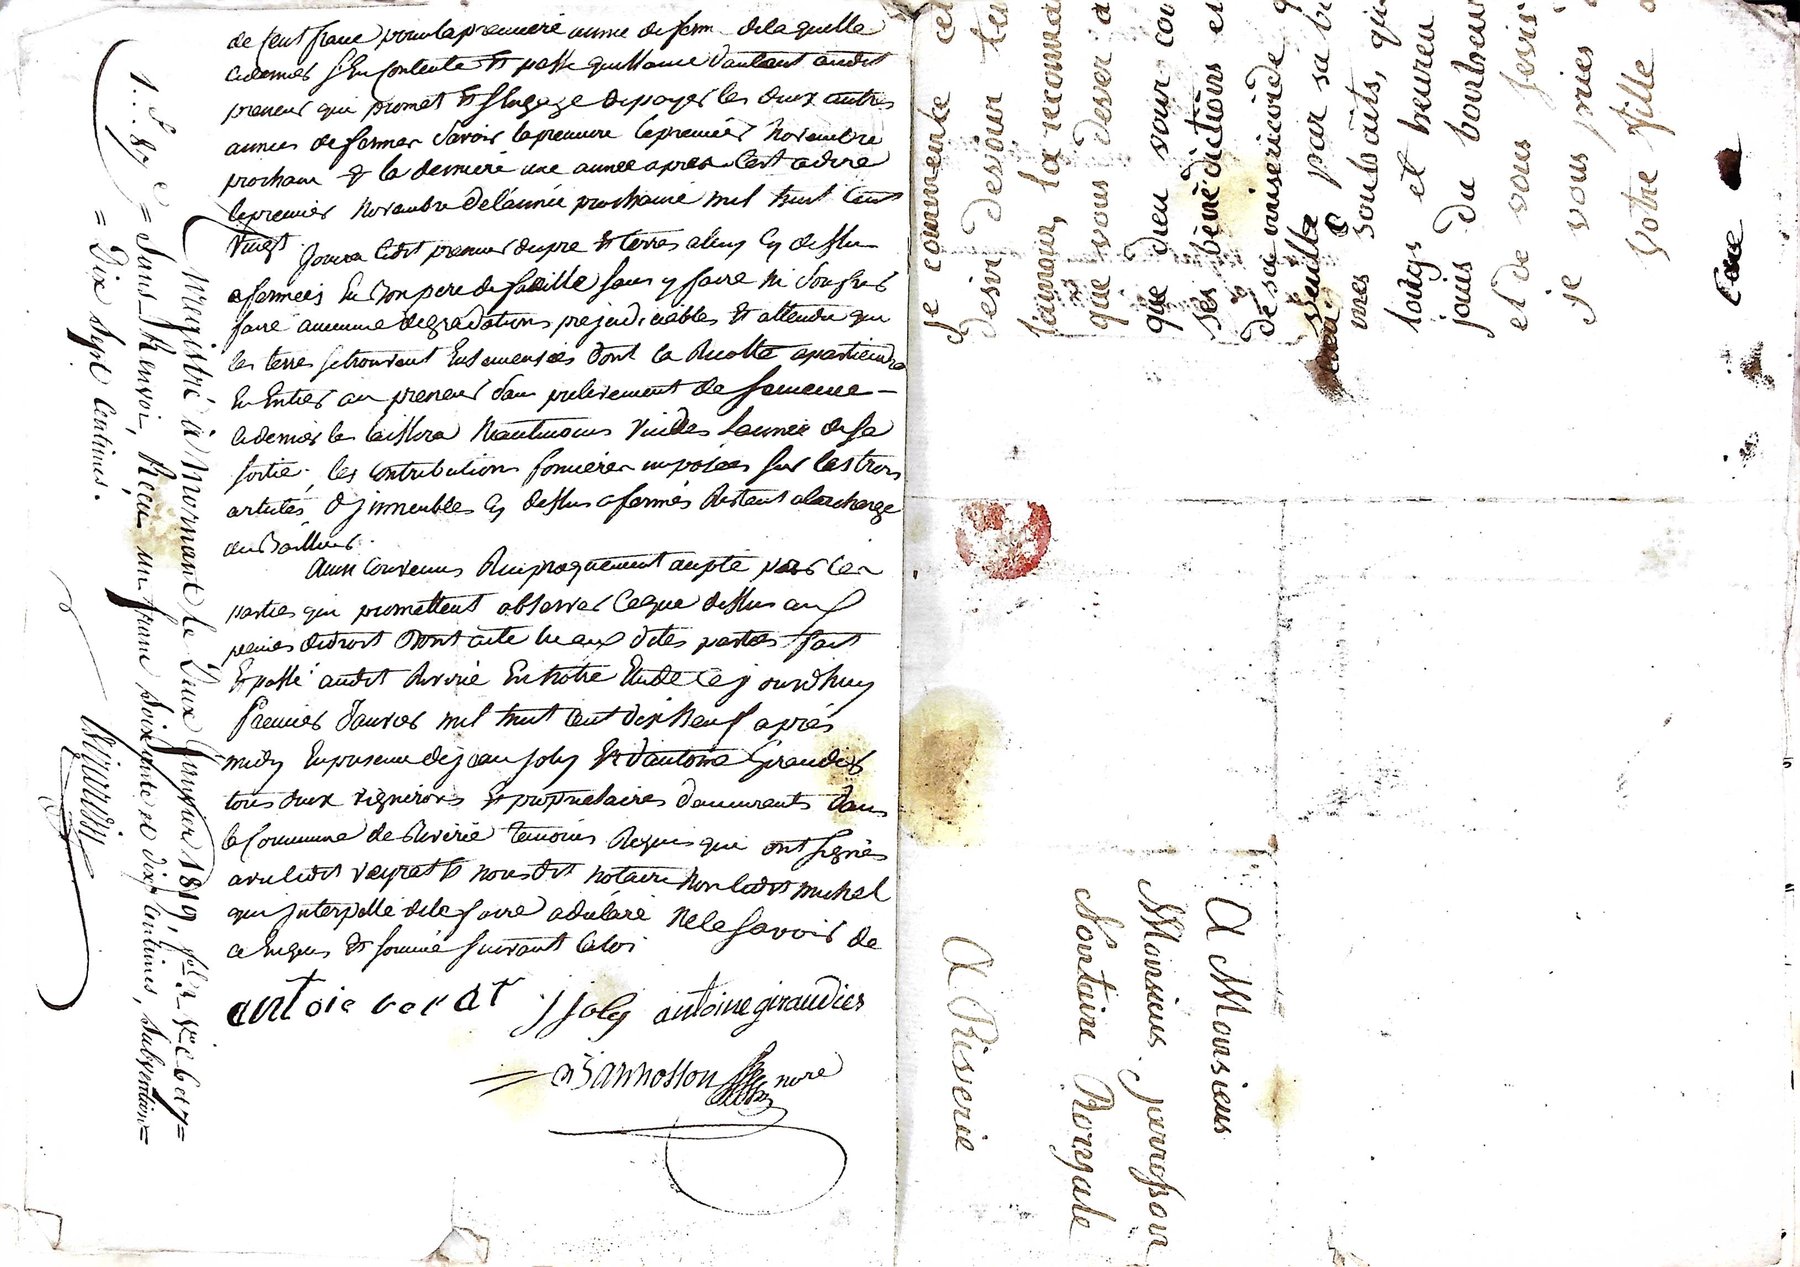 de cent franc pour la premiere année de ferme de laquelle
ce dernier s'en contente et passe quittance d'autant audit
preneur qui promet et s'engage de payer les deux autres
années de fermes savoir la premiere le premier novembre
prochain et la derniere une année apres c'est a dire
le premier novembre de l'année prochaine mil huit cent
vingt
Jouira ledit preneur du pre et terres a luy cy dessus
afermées en bon pere de famille sans y faire ni soufrir
faire aucunne degradations prejudiciables et attendu que
les terres se trouvent ensemensées dont la recolte apartiendra
en entier au preneur sans prelevement de semence —
ce dernier les laissera neantmoins vuides l'année de sa
sortie, les contributions foncieres imposées sur les trois
articles d'jmmeubles cy dessus afermés restent a la charge
du Bailleur.
Ainsi convenu reciproquement accepté par les
parties qui promettent observer ce que dessus aux
peines de droit dont acte lu aux dites parties fait
et passé audit Riverie en notre etude ce jourd'huy
premier Janvier mil huit cent dix neuf après
midy en presence de jean joly et d'antoine Giraudier
tous deux vignerons et proprietaires demeurants dans
la Commune de Riverie temoins requis qui ont signés
avec ledit veyrat et nous dit notaire non ledit michel
qui jnterpellé de le faire a déclaré ne le savoir de
ce enquis et sommé suivant la loi
antoie verat j joly antoine giraudier
Jannosson nore
Enregistré à Mornant le Deux Janvier 1819, fol.
= Sans Renvoi, Reçu un franc soixante et dix centimes, subvention =
= Dix sept centimes.
je commence ce
desir des vour te
l'amour, la reconna
que vous desser a
que dieu vour co
ses bénédictions e
de sa misericorde
par sa b
mes souhaits, qu
longs et heureu
jouir du bonheur
et de vous servir
je vous pries
votre fille
A Monsieur
Monsieur jarrosson
Nontaire Roiyale
A Riverie